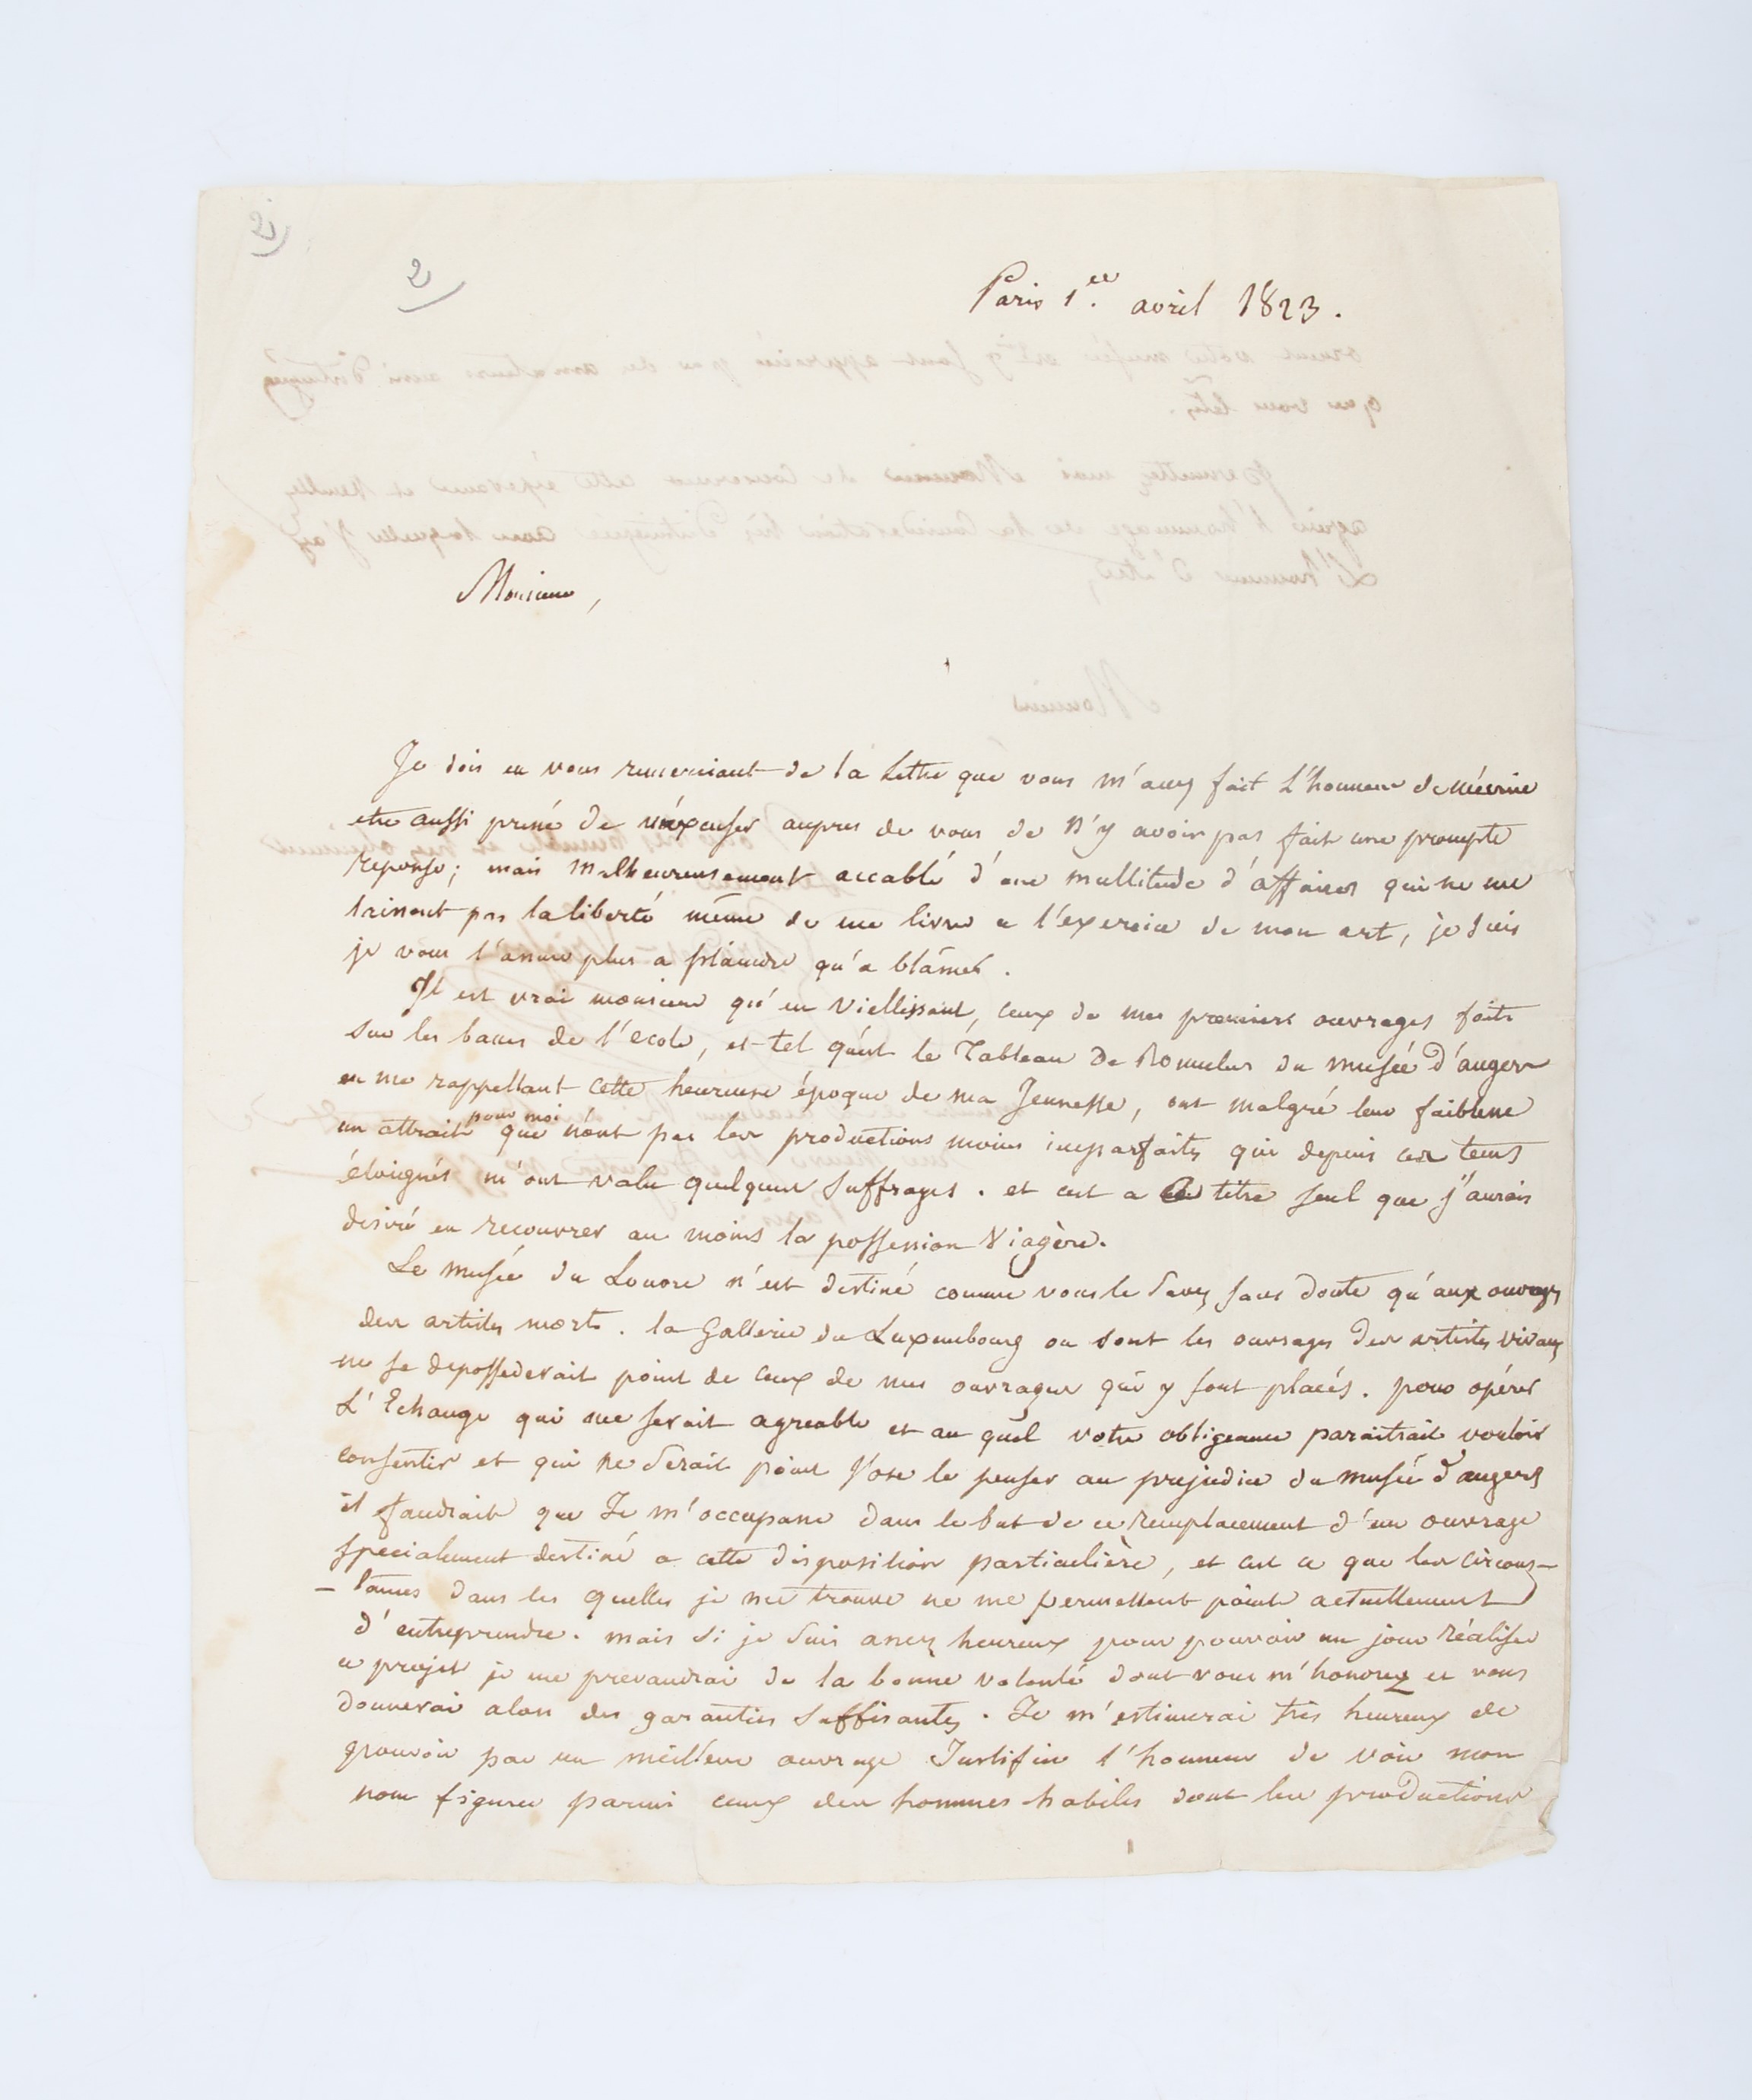 2
2
Paris 1.er avril 1823.
Monsieur,
Je dois en vous remerciant de la lettre que vous m'avez fait l'honneur de m'écrire
etre aussi pressé de m'éxcuser aupres de vous de n'y avoir pas fait une prompte
reponse; mais malheureusement accablé d'une multitude d'affaires qui ne me
laissent pas la liberté même de me livrer a l'exercice de mon art, je suis
je vous l'assure plus a plaindre qu'a blâmer.
Il est vrai monsieur qu'en viellissant, ceux de mes premiers ouvrages faits
sur les bancs de l'ecole, et tel qu'est le Tableau de Romulus du musée d'angers
en me rappellant cette heureuse époque de ma Jeunesse, ont malgré leur faiblesse
un attrait pour moi que n'ont pas les productions moins imparfaites qui depuis ces tems
éloignés m'ont valu quelques suffrages. et cest a ce titre seul que j'aurais
desiré en recouvrer au moins la possession viagère.
Le musée du Louvre n'est destiné comme vous le savez sans doute qu'aux ouvrages
des artistes morts. la Gallerie du Luxembourg ou sont les ouvrages des artistes vivans
ne se deposséderait point de ceux de mes ouvrages qui y sont placés. pour opérer
L'Echange qui me serait agreable et au quel votre obligeance paraitrait vouloir
consentir et qui ne serait point j'ose le penser au prejudice du musée d'angers
il faudrait que Je m'occupasse dans le but de ce remplacement d'un ouvrage
specialement destiné a cette disposition particulière, et cest ce que les circons-
-tances dans les quelles je me trouve ne me permettent point actuellement
d'entreprendre. mais si je suis assez heureux pour pouvoir un jour réaliser
ce projet je me prevaudrai de la bonne volonté dont vous m'honorez et vous
donnerai alors des garanties suffisantes. Je m'estimerai très heureux de
pouvoir par un meilleur ouvrage Justifier l'honneur de voir mon
nom figurer parmi ceux des hommes habiles dont les productions